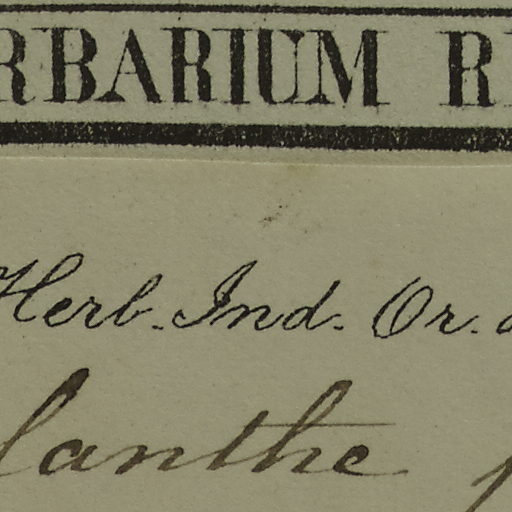 RBARIUM R
Herb. Ind. Or.
lanthe